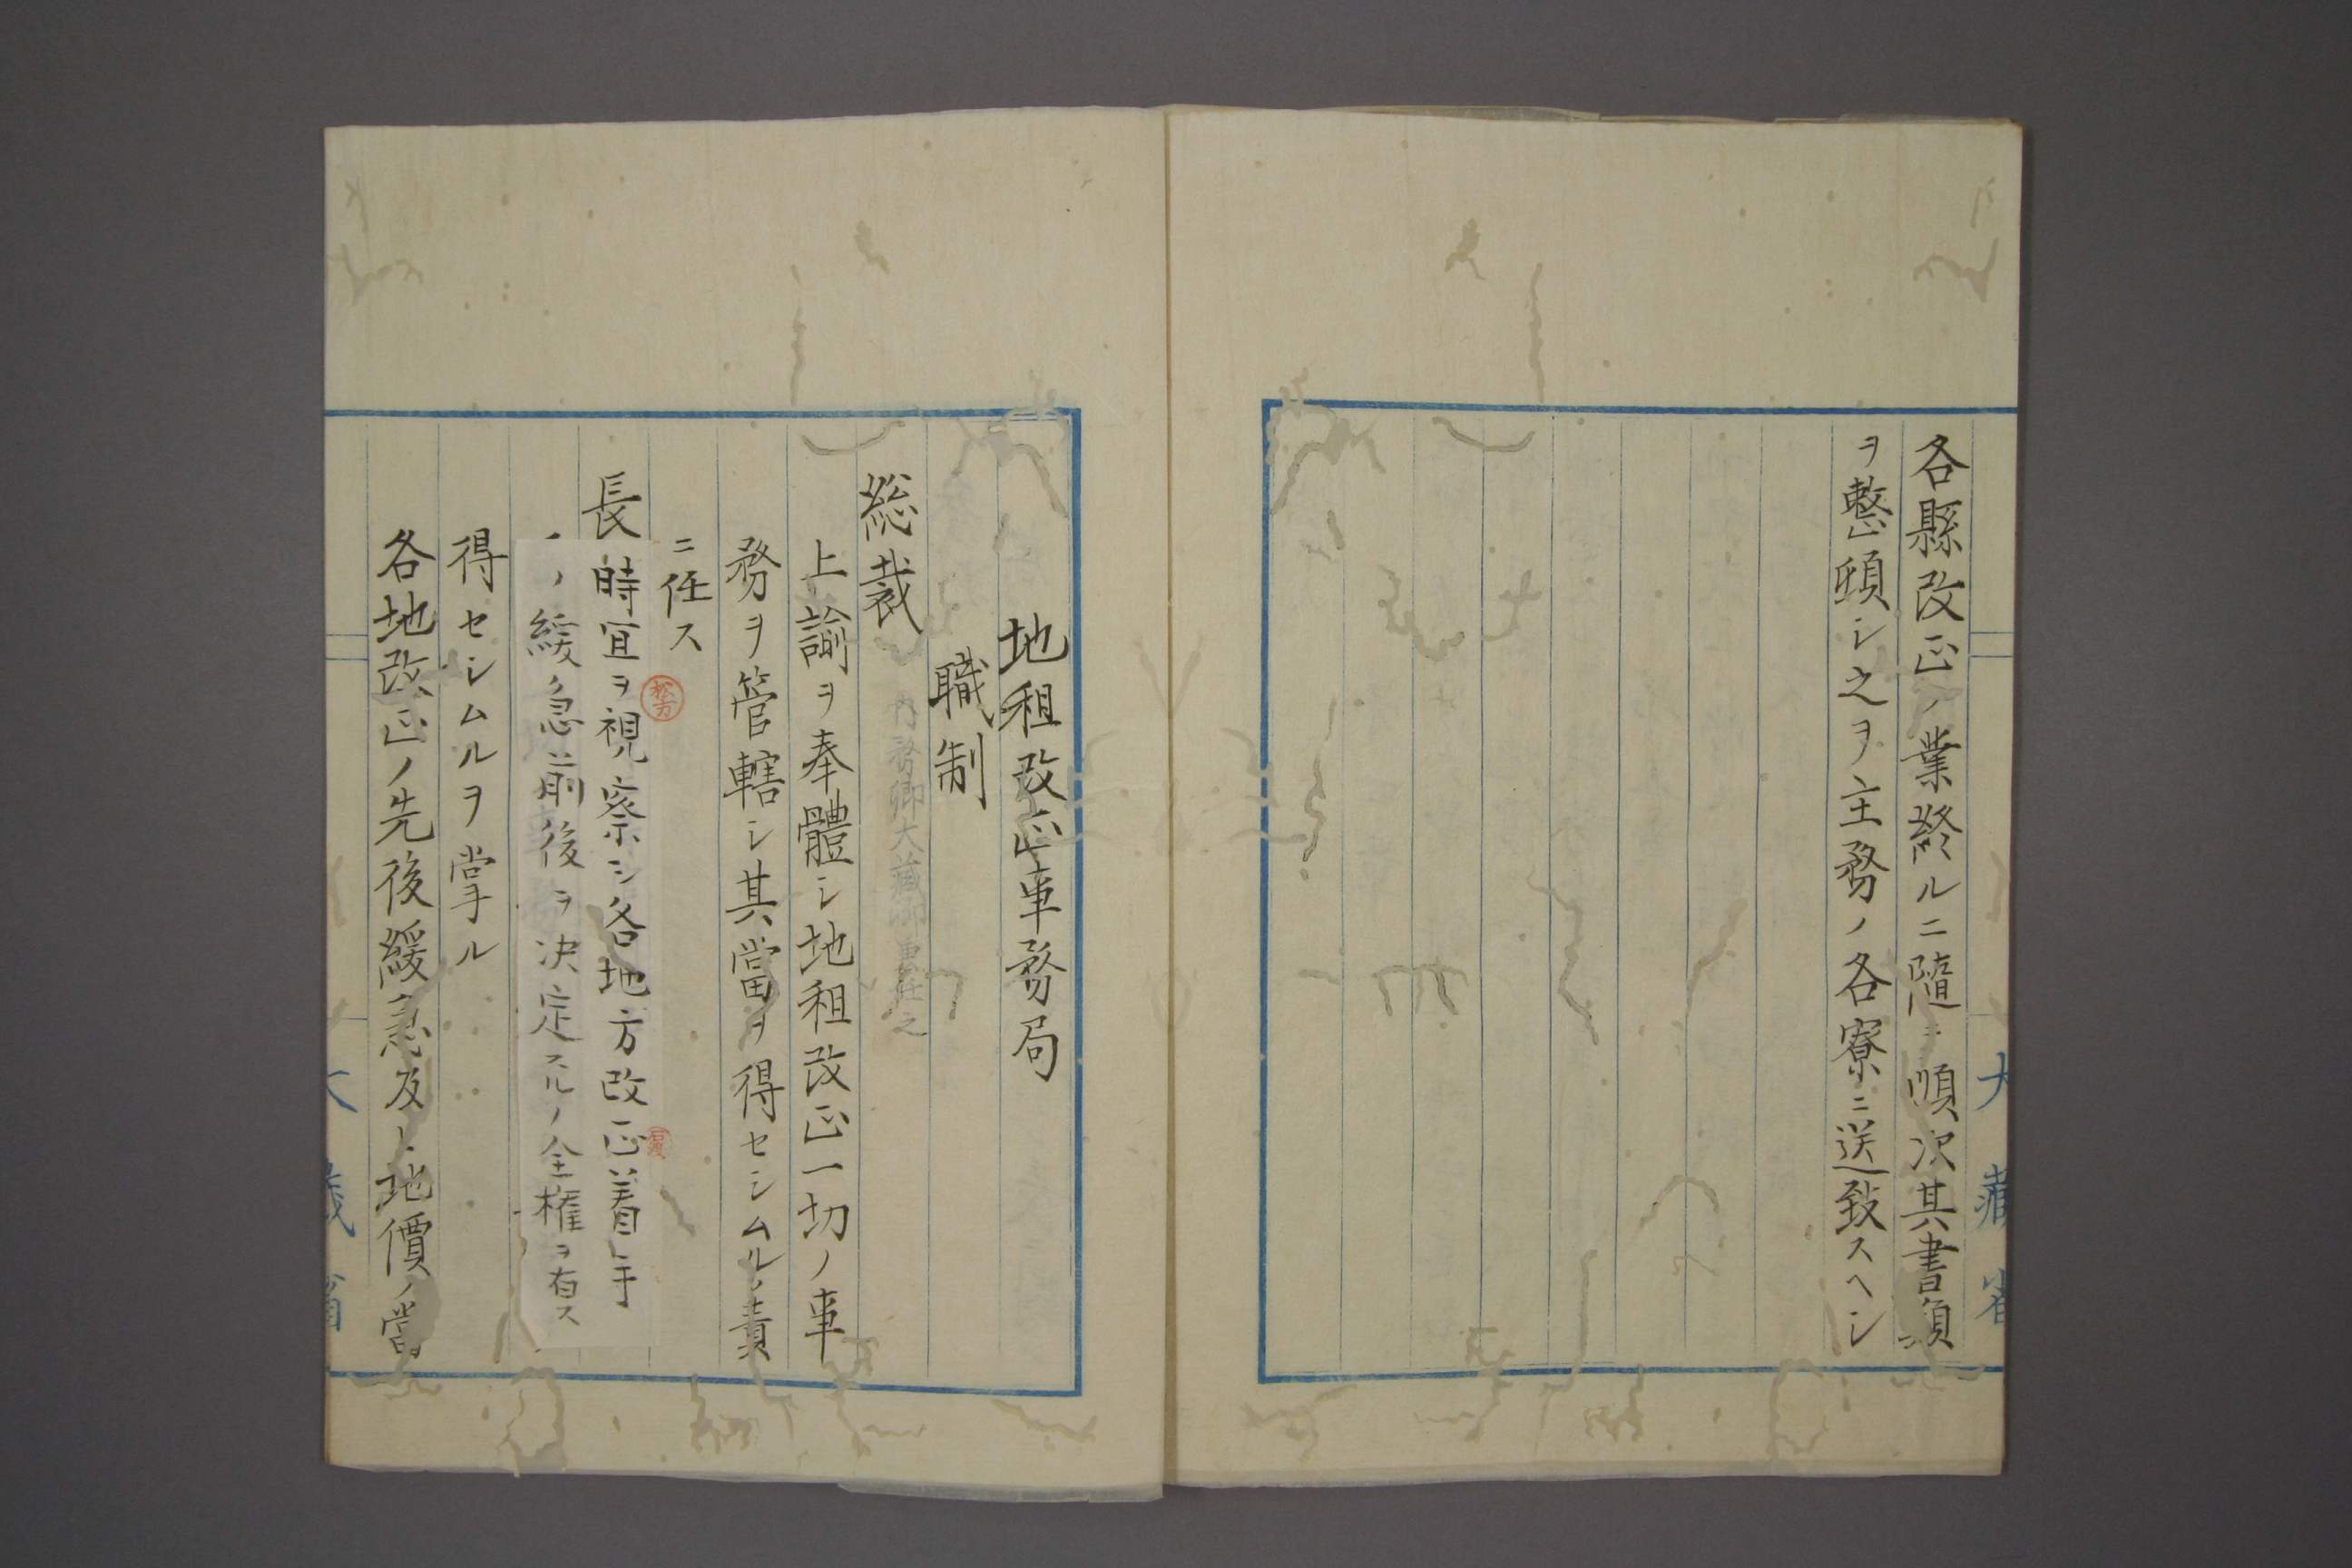 大藏省
各縣改正ノ業終ルニ隨ヒ順次其書類
ヲ整頓シ之ヲ主務ノ各寮ニ送致スヘシ
地租改正事務局
職制
総裁
内務卿大藏卿
上諭ヲ奉體シ地租改正一切ノ事
務ヲ管轄シ其當ヲ得セシムルノ責
ニ任ス
松方
長時宜ヲ視察シ各地方改正着手
ノ緩急前後ヲ決定スルノ全権ヲ有ス
得セシムルヲ掌ル
各地改正ノ先後緩急及ヒ地價ノ當
大藏省